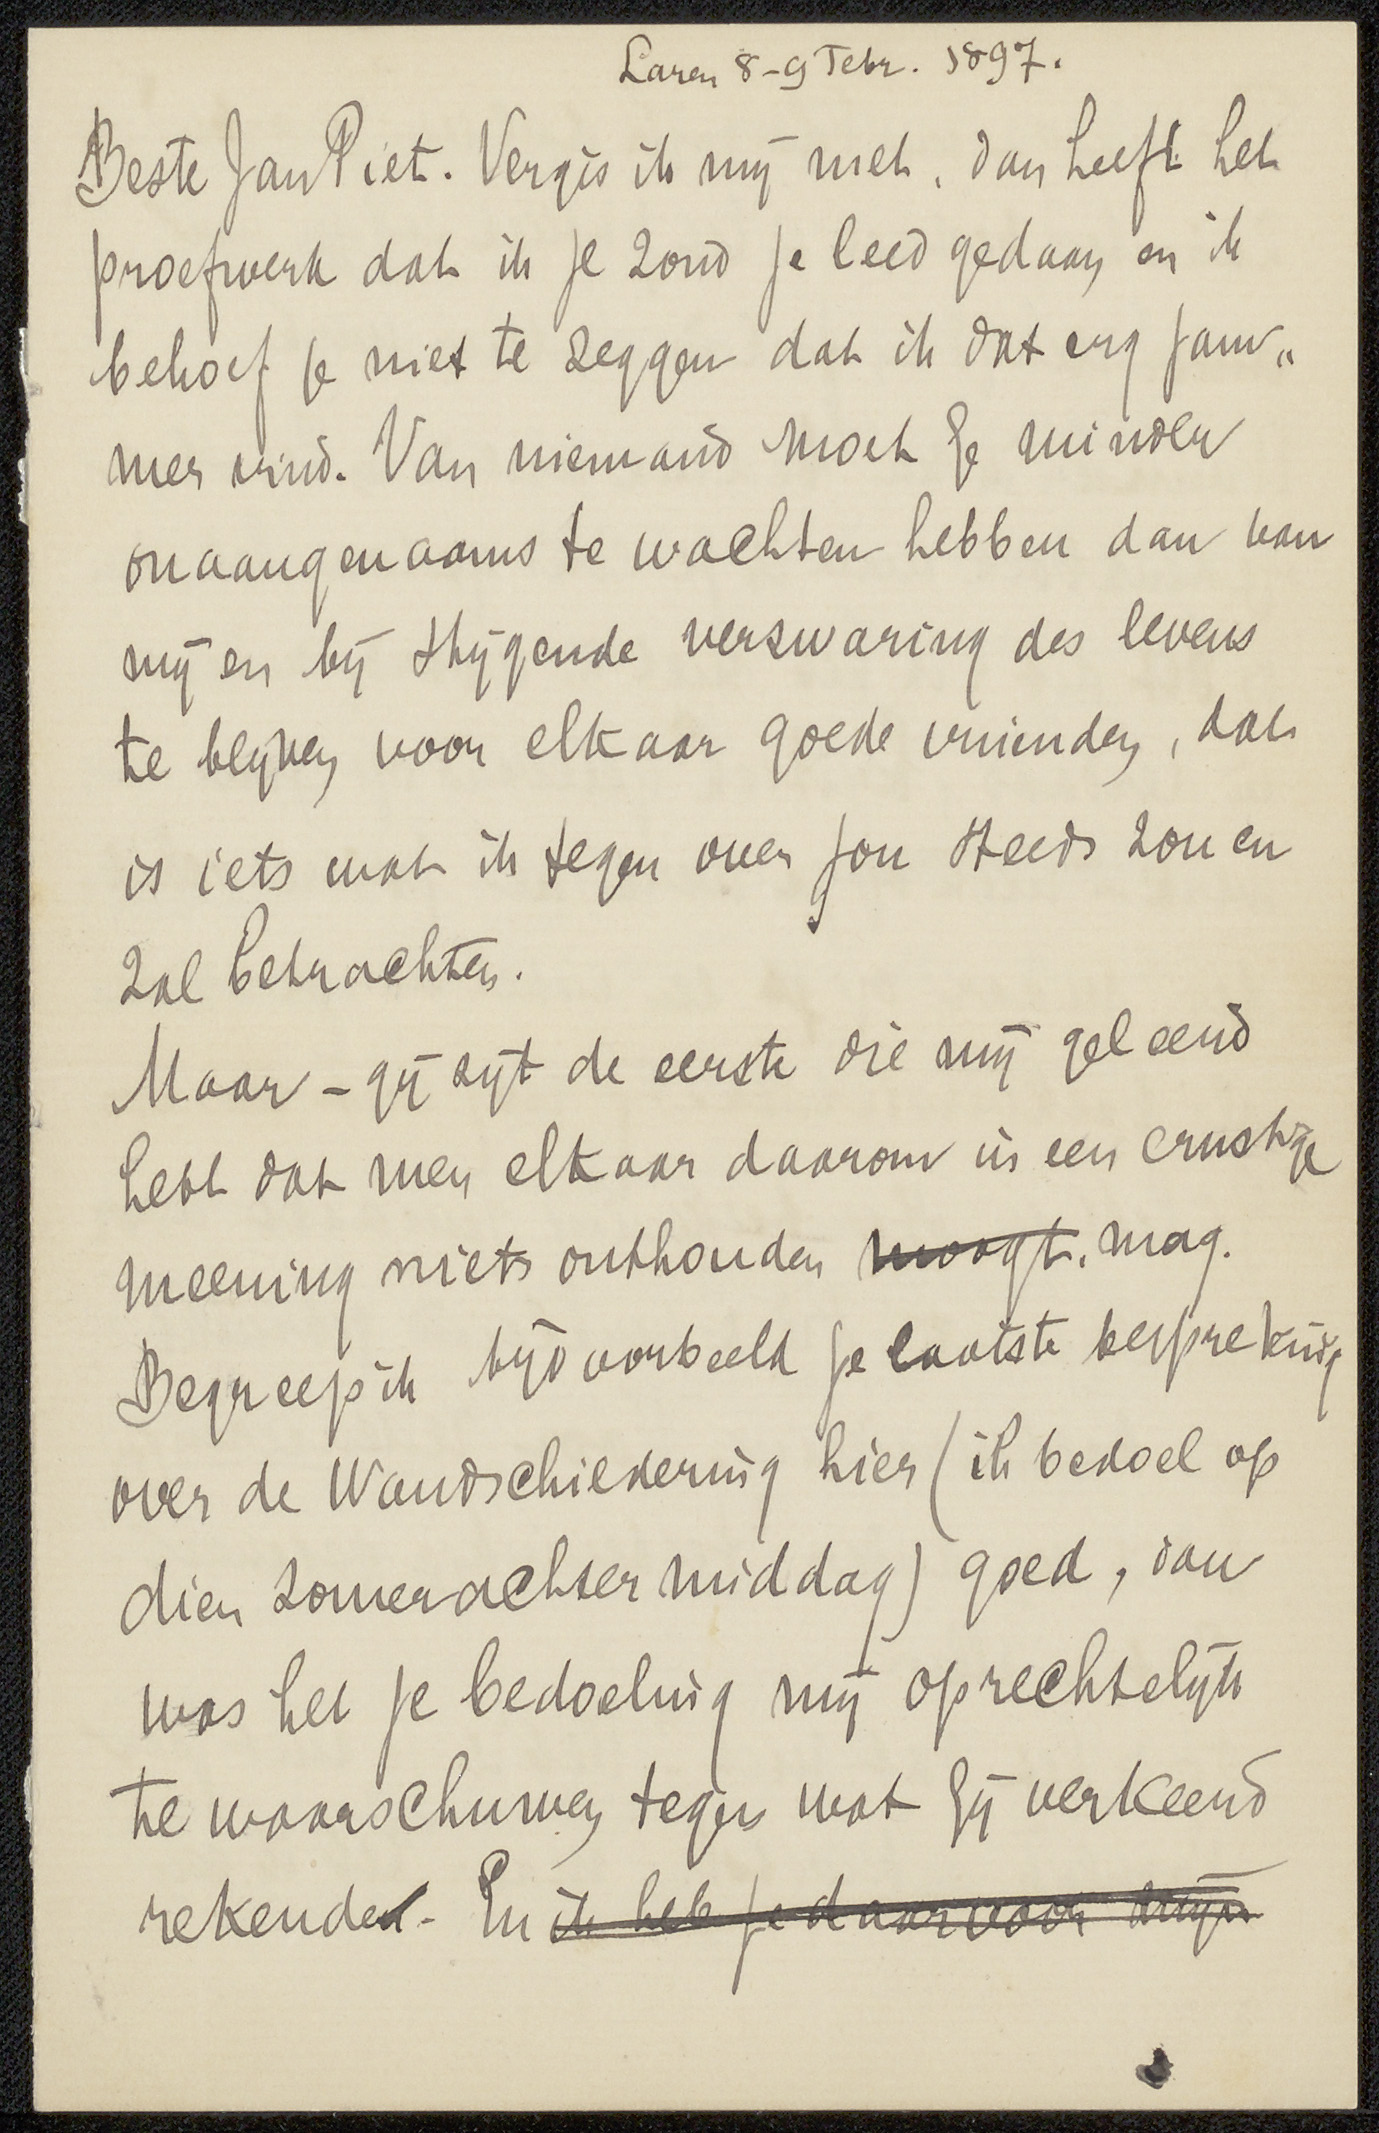 Laren 8-9 Febr. 1897.
Beste Jan Piet. Vergis ik mij niet, dan heeft het
proefwerk dat ik je zond je leed gedaan en ik
behoef je niet te zeggen dat ik dat erg jam„
mer vind. Van niemand moet je minder
onaangenaams te wachten hebben dan van
mij en bij stijgende verzwaring des levens
te blijven voor elkaar goede vrienden, dat
is iets wat ik tegen over jou steeds zou en
zal betrachten.
Maar - gij zijt de eerste die mij geleend
hebt dat men elkaar daarom in een ernstige
meening niets onthouden moogt. mag.
Begreep ik bijvoorbeeld je laatste bespreking
over de Wandschildering hier (ik bedoel op
dien zomerachtermiddag) goed, dan
was het je bedoeling mij oprechtelijk
te waarschuwen tegen wat gij verkeerd
rekende. En ik heb je daarvoor mijn